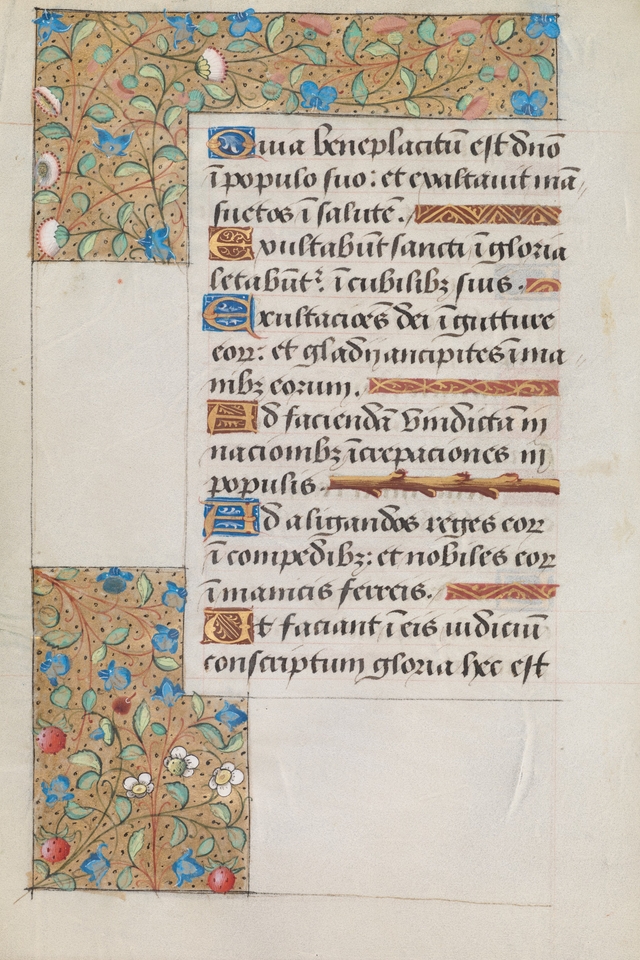 Quia beneplacitū est dn̄o
ī populo suo: et exaltauit mā
suetos ī salutē.
Exultabūt sancti ī gloria
letabūtʳ ī cubilibꝫ suis.
Exultacioēs dei ī gutture
eoꝝ: et gladij ancipites ī ma
nibꝫ eorum.
Ad faciendā vīndictā in
nacionibꝫ īcrepaciones in
populis.
Ad aligandos reges eoꝝ
ī compedibꝫ: et nobiles eoꝝ
ī manicis ferreis.
Ut faciant ī eis iudiciū
conscriptum gloria hec est